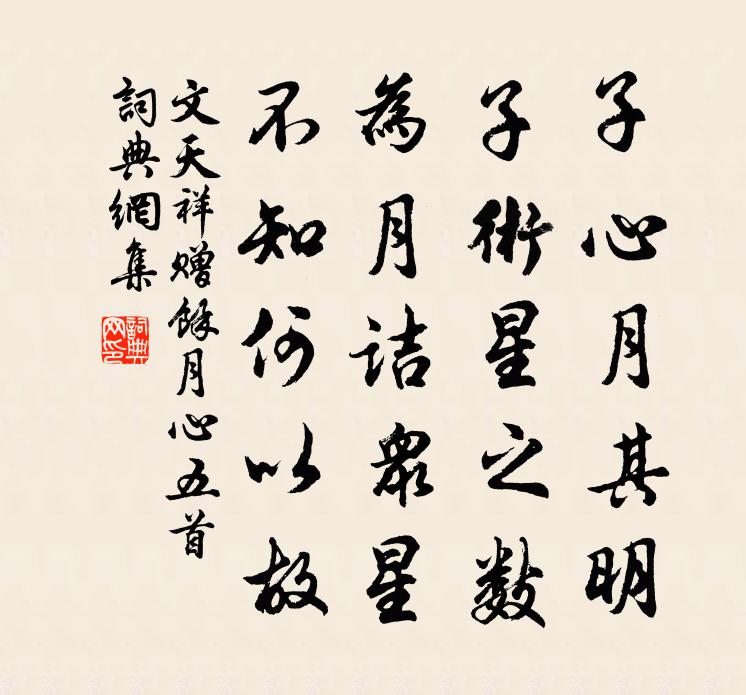 子心月其明
子術星之數
為月詰衆星
不知何以故
文天祥贈餘月心五首
詞典網集
詞典网印